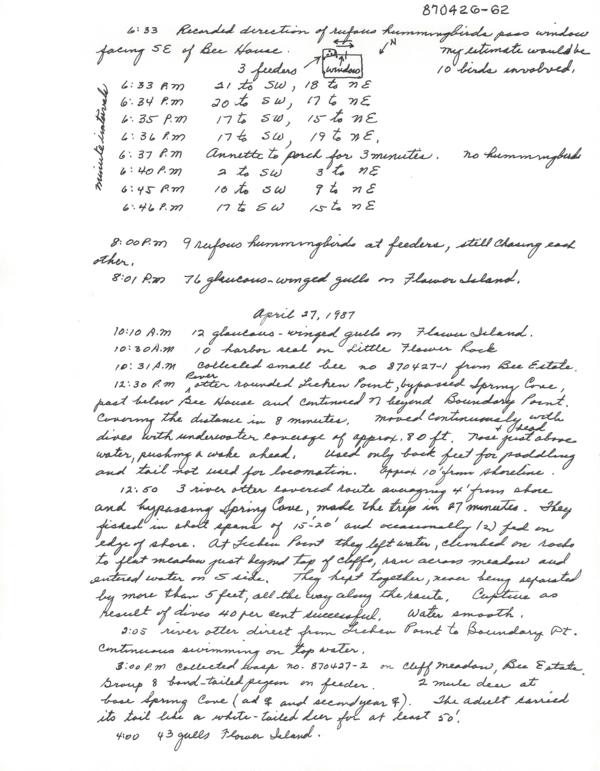 870426-62
6:33 Recorded direction of rufous hummingbirds pass window
facing SE of Bee House.
N
my estimate would be
3 feeders
window
10 birds involved.
minute intervals
6:33 P.M 21 to SW, 18 to NE
6:34 P.M 20 to SW, 17 to NE
6:35 P.M 17 to SW, 15 to NE
6:36 P.M 17 to SW, 19 to NE.
6:37 P.M Annette to porch for 3 minutes. No hummingbirds
6:40 P.M 2 to SW 3 to NE
6:45 P.M 10 to SW 9 to NE
6:46 P.M 17 to SW 15 to NE
8:00 P.M 9 rufous hummingbirds at feeders, still chasing each
other.
8:01 P.M 76 glaucous-winged gulls on Flower Island.
April 27, 1987
10:10 A.M 12 glaucous-winged gulls on Flower Island.
10:30 A.M 10 harbor seal on Little Flower Rock
10:31 A.M Collected small bee no 870427-1 from Bee Estate.
12:30 P.M River otter rounded Lichen Point, bypassed Spring Cove,
past below Bee House and continued N beyond Boundary Point.
Covering the distance in 8 minutes. Moved continuously with
dives with underwater coverage of approx. 80 ft. Nose & head just above
water, pushing a wake ahead. Used only back feet for paddling
and tail not used for locomotion. Approx 10' from shoreline.
12:50 3 river otter covered route averaging 4' from shore
and bypassing Spring Cove, made the trip in 27 minutes. They
fished in short spans of 15'-20' and occasionally (2) fed on
edge of shore. At Lichen Point they left water, climbed on rocks
to flat meadow just beyond top of cliffs, ran across meadow and
entered water on S side. They kept together, never being separated
by more than 5 feet, all the way along the route. Capture as
result of dives 40 per cent successful. Water smooth.
2:05 river otter direct from Lichen Point to Boundary Pt.
Continuous swimming on top water.
3:00 P.M Collected wasp no. 870427-2 on cliff meadow, Bee Estate.
Group 8 band-tailed pigeon on feeder. 2 mule deer at
base Spring Cove (ad ♀ and second year ♀). The adult carried
its tail like a white-tailed deer for at least 50'.
4:00 43 gulls Flower Island.